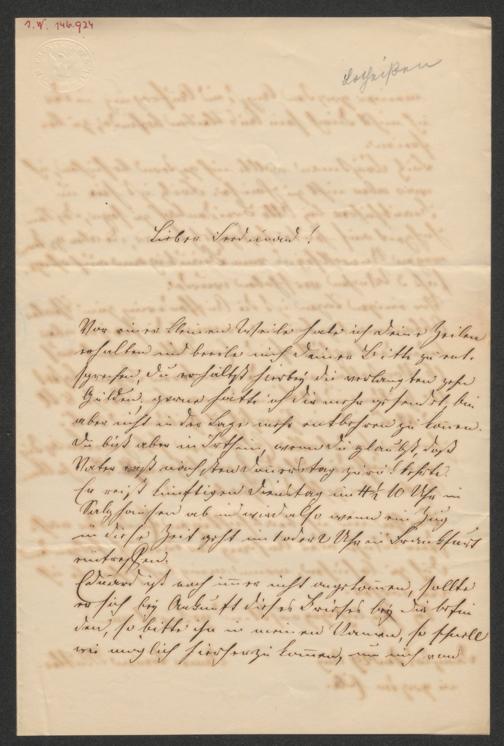 I.N. 146.924
Lotheißen
Lieber Ferdinand!
Vor einer kleinen Weile habe ich deine Zeilen
erhalten und beeile mich deiner Bitte zu ent-
sprechen, du erhältst hierbey die verlangten zehn
Gulden, gerne hätte ich dir mehr gesendet, bin
aber nicht in der Lage mehr entbehren zu können.
Du bist aber im Irrthum, wenn du glaubst, daß
Vater erst nächsten Donnerstag zurükkehrt.
Er reist künftigen Dienstag um 10 Uhr in
Salzhausen ab und wird also wenn ein Zug
in dieser Zeit geht um 1 oder 2 Uhr in Frankfurt
eintreffen.
Eduard ist noch immer nicht angekommen, sollte
er sich bey Ankunft dieses Briefes bey dir befin-
den, so bitte ihn in meinem Namen, so schnell
wie möglich hierherzu kommen, um mich von